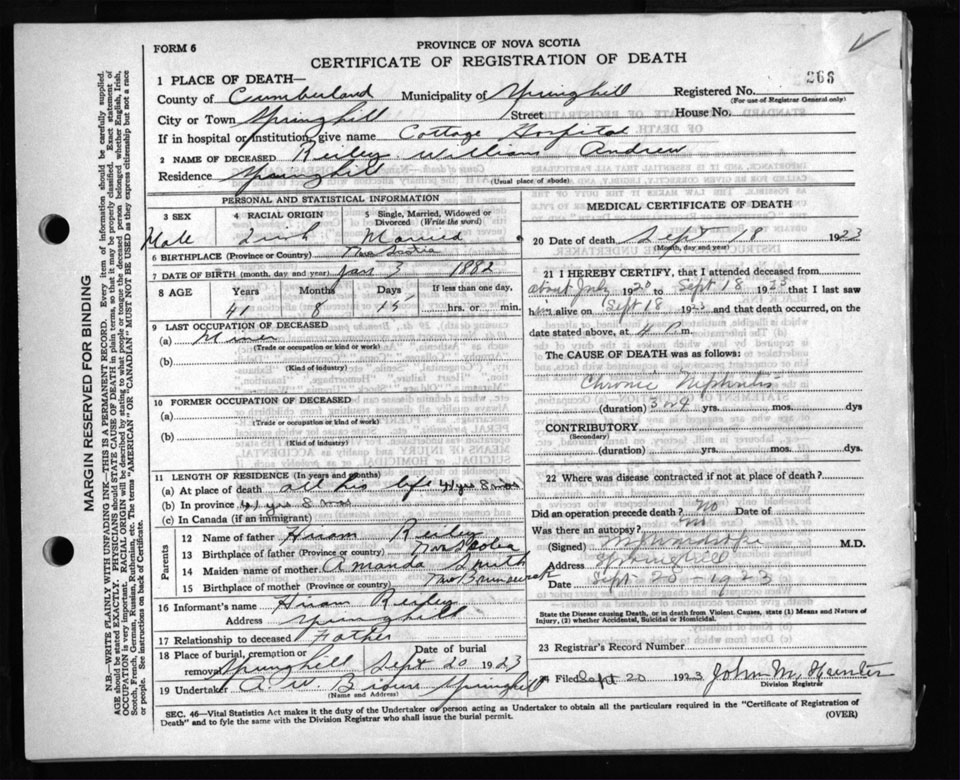 FORM 6
PROVINCE OF NOVA SCOTIA
CERTIFICATE OF REGISTRATION OF DEATH
366
1 PLACE OF DEATH—
County of Cumberland Municipality of Springhill Registered No.
(For use of Registrar General only)
City or Town Springhill Street House No.
If in hospital or institution, give name Cottage Hospital
2 NAME OF DECEASED Reiley William Andrew
Residence Springhill
(Usual place of abode)
PERSONAL AND STATISTICAL INFORMATION
3 SEX 4 RACIAL ORIGIN 5 Single, Married, Widowed or Divorced (Write the word)
Male Irish Married
6 BIRTHPLACE (Province or Country) Nova Scotia
7 DATE OF BIRTH (month, day and year) Jan 3 1882
8 AGE Years Months Days If less than one day,
41 8 15 hrs. or min.
9 LAST OCCUPATION OF DECEASED
(a) Miner
(Trade or occupation or kind of work)
(b)
(Kind of industry)
10 FORMER OCCUPATION OF DECEASED
(a)
(Trade or occupation or kind of work)
(b)
(Kind of industry)
11 LENGTH OF RESIDENCE (In years and months)
(a) At place of death all his life 41 yrs 8 mos
(b) In province 41 yrs 8 mos
(c) In Canada (if an immigrant)
Parents
12 Name of father Hiram Reiley
13 Birthplace of father (Province or country) Nova Scotia
14 Maiden name of mother Amanda Smith
15 Birthplace of mother (Province or country) New Brunswick
16 Informant's name Hiram Reiley
Address Springhill
17 Relationship to deceased Father
18 Place of burial, cremation or removal Springhill Date of burial Sept 20 1923
19 Undertaker A. W. Brown Springhill
(Name and Address)
MEDICAL CERTIFICATE OF DEATH
20 Date of death Sept 18 1923
(Month, day and year)
21 I HEREBY CERTIFY, that I attended deceased from
about July 1920 to Sept 18 1923 that I last saw
him alive on Sept 18 1923 and that death occurred, on the
date stated above, at 4 P. m.
The CAUSE OF DEATH was as follows:
Chronic Nephritis
(duration) 3 or 4 yrs. mos. dys
CONTRIBUTORY
(Secondary)
(duration) yrs. mos. dys.
22 Where was disease contracted if not at place of death?
Did an operation precede death? no Date of
Was there an autopsy? no
(Signed) M.D.
Address Springhill
Date Sept 20 - 1923
State the Disease causing Death, or in death from Violent Causes, state (1) Means and Nature of
Injury, (2) whether Accidental, Suicidal or Homicidal.
23 Registrar's Record Number
Filed Sept 20 1923 John M. Hunter
Division Registrar
SEC. 46—Vital Statistics Act makes it the duty of the Undertaker or person acting as Undertaker to obtain all the particulars required in the "Certificate of Registration of
Death" and to fyle the same with the Division Registrar who shall issue the burial permit.
(OVER)
MARGIN RESERVED FOR BINDING
N.B.—WRITE PLAINLY WITH UNFADING INK—THIS IS A PERMANENT RECORD. Every item of information should be carefully supplied.
AGE should be stated EXACTLY. PHYSICIANS should STATE CAUSE OF DEATH in plain terms, so that it may be properly classified. Exact statement of
OCCUPATION is very important. RACIAL ORIGIN will be described by stating to what people or tongue the deceased person belonged whether English, Irish,
Scotch, French, German, Russian, Ruthenian, etc. The terms "AMERICAN" OR "CANADIAN" MUST NOT BE USED as they express citizenship but not a race
or people. See instructions on back of Certificate.